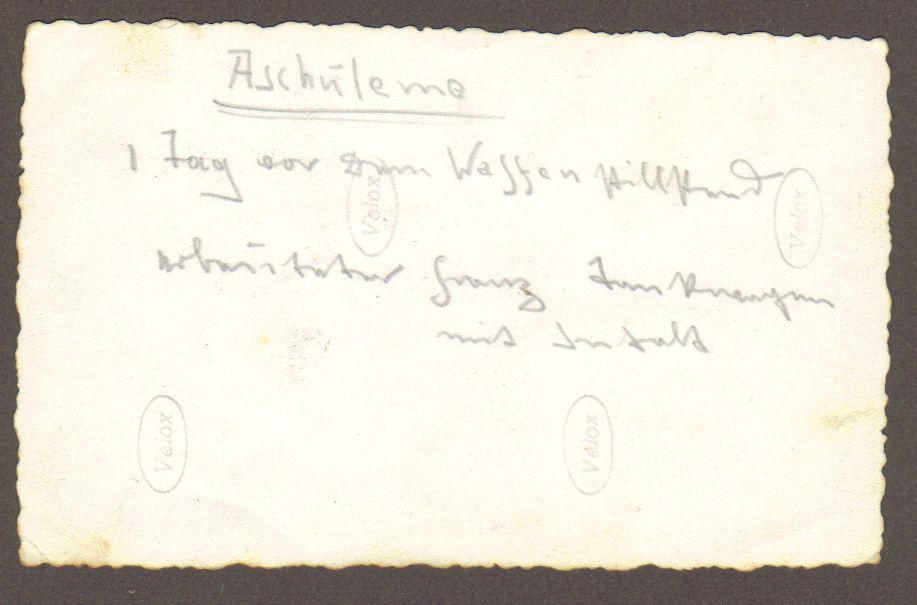 Aschüleme
1 Tag vor dem Waffenstillstand
erbeuteter franz. Tankwagen
mit Inhalt
Velox
Velox
Velox
Velox